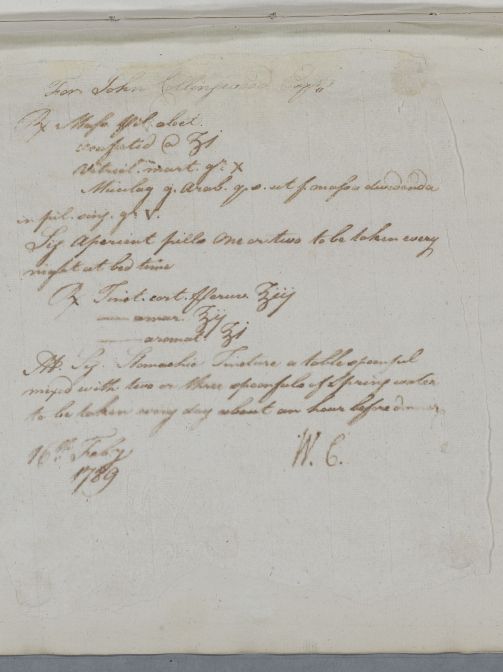 For John Collingwood Esqr.
℞ Massa Pil. aloet.
rufi @ ʒj
Vitriol. mart. gr. X
Mucilag. g. Arab. q. s. ut f. massa dividenda
in pil. sing. gr. V.
Sig. Aperient pills One or two to be taken every
night at bed time
℞ Tinct. cort. Peruv. ℥iij
—— amar. ℥ij
—— aromat ℥j
M. Sig. Stomachic Tincture a table spoonful
mixed with two or three spoonfuls of Spring water
to be taken every day about an hour before dinner
16th Feby
1789
W. C.